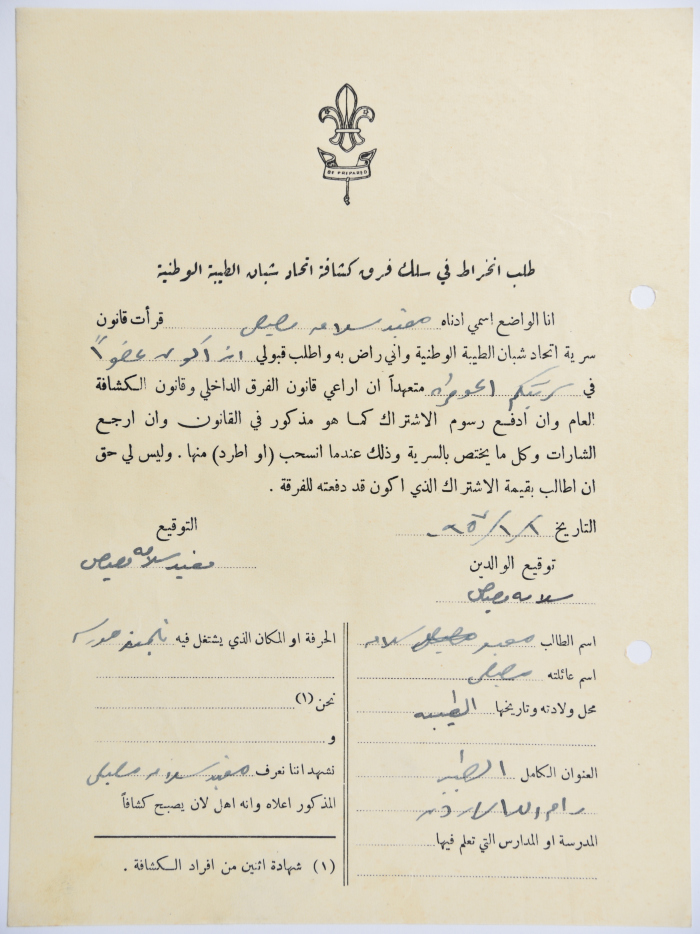 BE PREPARED
طلب انخراط في سلك فرق كشافة اتحاد شبان الطيبة الوطنية
انا الواضع اسمي ادناه مفيد سلامه مصيص قرأت قانون
سرية اتحاد شبان الطيبة الوطنية واني راض به واطلب قبولي ان اكون عضواً
في سريتكم متعهداً ان اراعي قانون الفرق الداخلي وقانون الكشافة
العام وان أدفع رسوم الاشتراك كما هو مذكور في القانون وان ارجع
الشارات وكل ما يختص بالسرية وذلك عندما انسحب (او اطرد) منها . وليس لي حق
ان اطالب بقيمة الاشتراك الذي اكون قد دفعته للفرقة .
التاريخ
التوقيع
مفيد سلامه مصيص
توقيع الوالدين
سلامه مصيص
اسم الطالب مفيد سلامه
اسم عائلته مصيص
محل ولادته وتاريخها الطيبه
العنوان الكامل الطيبه
رام الله
المدرسة او المدارس التي تعلم فيها
الحرفة او المكان الذي يشتغل فيه
نحن (١)
و
نشهد اننا نعرف مفيد سلامه مصيص
المذكور اعلاه وانه اهل لان يصبح كشافاً
(١) شهادة اثنين من افراد الكشافة .